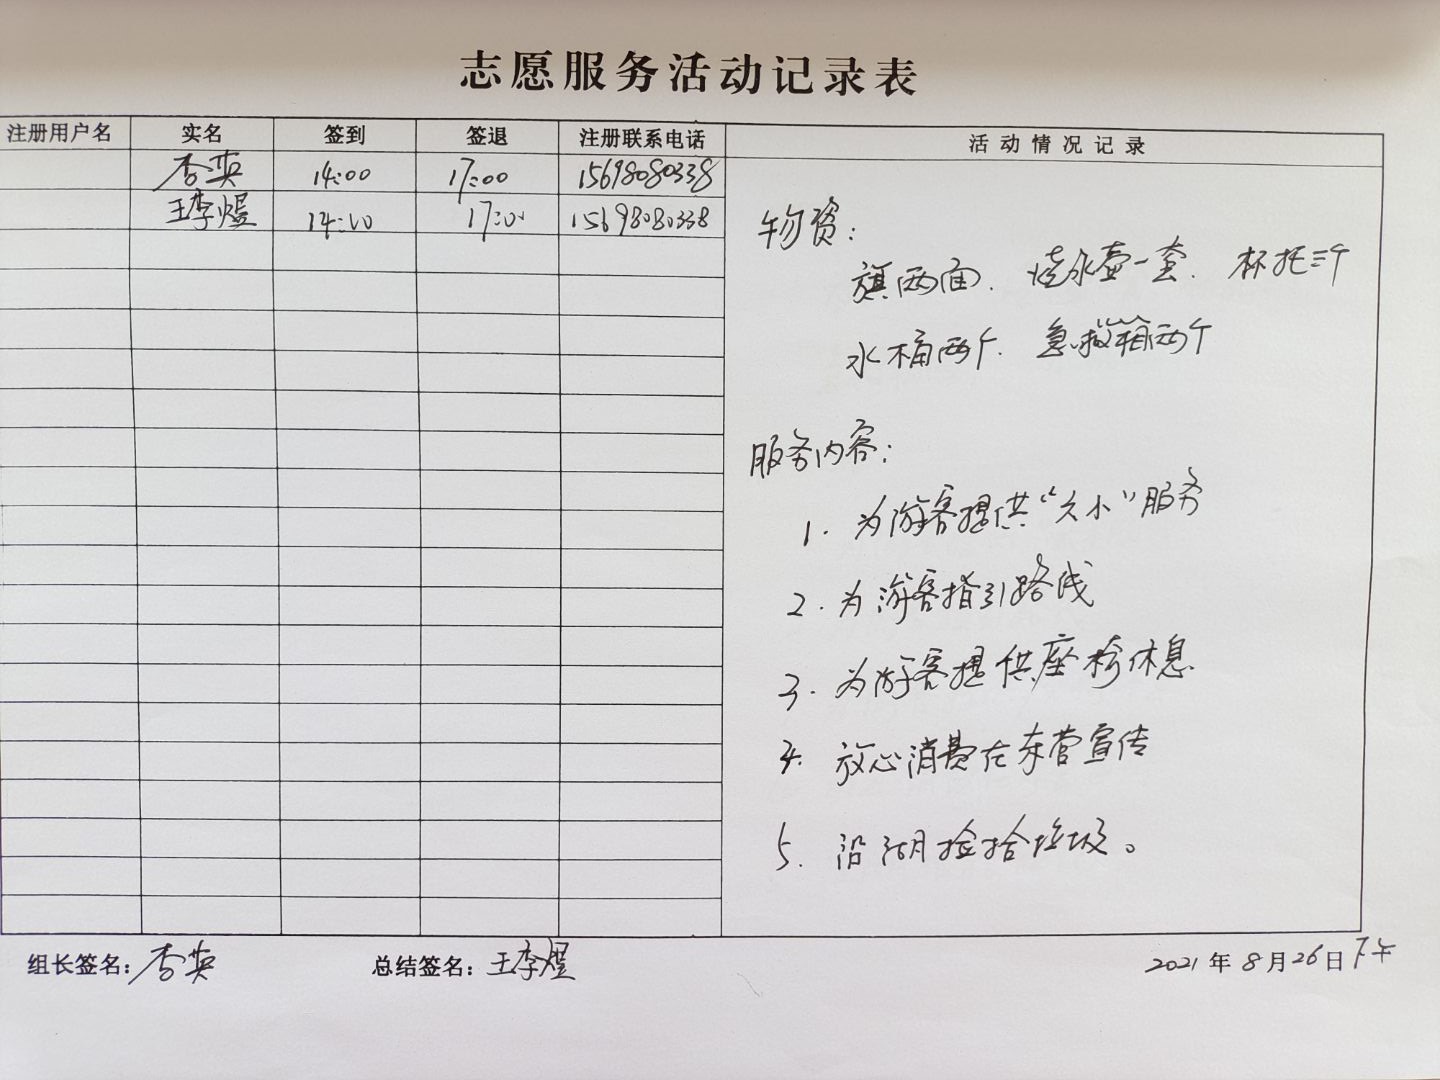 志愿服务活动记录表
注册用户名 实名 签到 签退 注册联系电话 活动情况记录
李英 14:00 17:00 15698080338
王李煜 14:10 17:00 15698080338
物资:
旗两面. 烧水壶一套. 杯托三个
水桶两个. 急救箱两个
服务内容:
1. 为游客提供“大小”服务
2. 为游客指引路线
3. 为游客提供座椅休息
4. 放心消费在东营宣传
5. 沿湖捡拾垃圾。
组长签名: 李英 总结签名: 王李煜 2021年8月26日下午